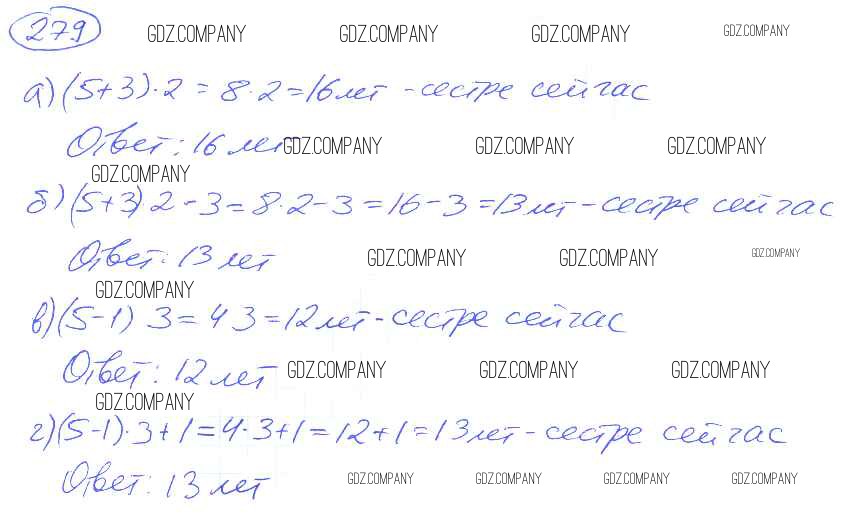 279 GDZ.COMPANY GDZ.COMPANY GDZ.COMPANY GDZ.COMPANY
а) (5+3)·2 = 8·2 = 16 лет - сестре сейчас
Ответ: 16 лет GDZ.COMPANY GDZ.COMPANY GDZ.COMPANY
GDZ.COMPANY
б) (5+3) 2 - 3 = 8·2 - 3 = 16 - 3 = 13 лет - сестре сейчас
Ответ: 13 лет GDZ.COMPANY GDZ.COMPANY GDZ.COMPANY
GDZ.COMPANY
в) (5-1) 3 = 4 3 = 12 лет - сестре сейчас
Ответ: 12 лет GDZ.COMPANY GDZ.COMPANY GDZ.COMPANY
GDZ.COMPANY
г) (5-1)·3+1 = 4·3+1 = 12+1 = 13 лет - сестре сейчас
Ответ: 13 лет GDZ.COMPANY GDZ.COMPANY GDZ.COMPANY GDZ.COMPANY